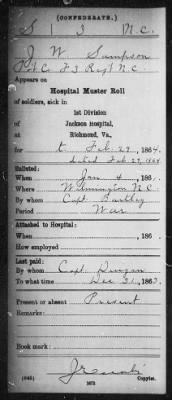 (CONFEDERATE.)
S 3 N.C.
J W Sampson
Pvt Co F 3 Regt N.C.
Appears on
Hospital Muster Roll
of soldiers, sick in
1st Division
Jackson Hospital,
at
Richmond, Va.,
for to Feb. 29, 1864.
dated Feb 29, 1864
Enlisted:
When Jan 4, 186 .
Where Wilmington N.C.
By whom Capt.
Period War
Attached to Hospital:
When , 186 .
How employed
Last paid:
By whom Capt.
To what time Dec 31, 1863.
Present or absent Present
Remarks:
Book mark:
(645)
Copyist.